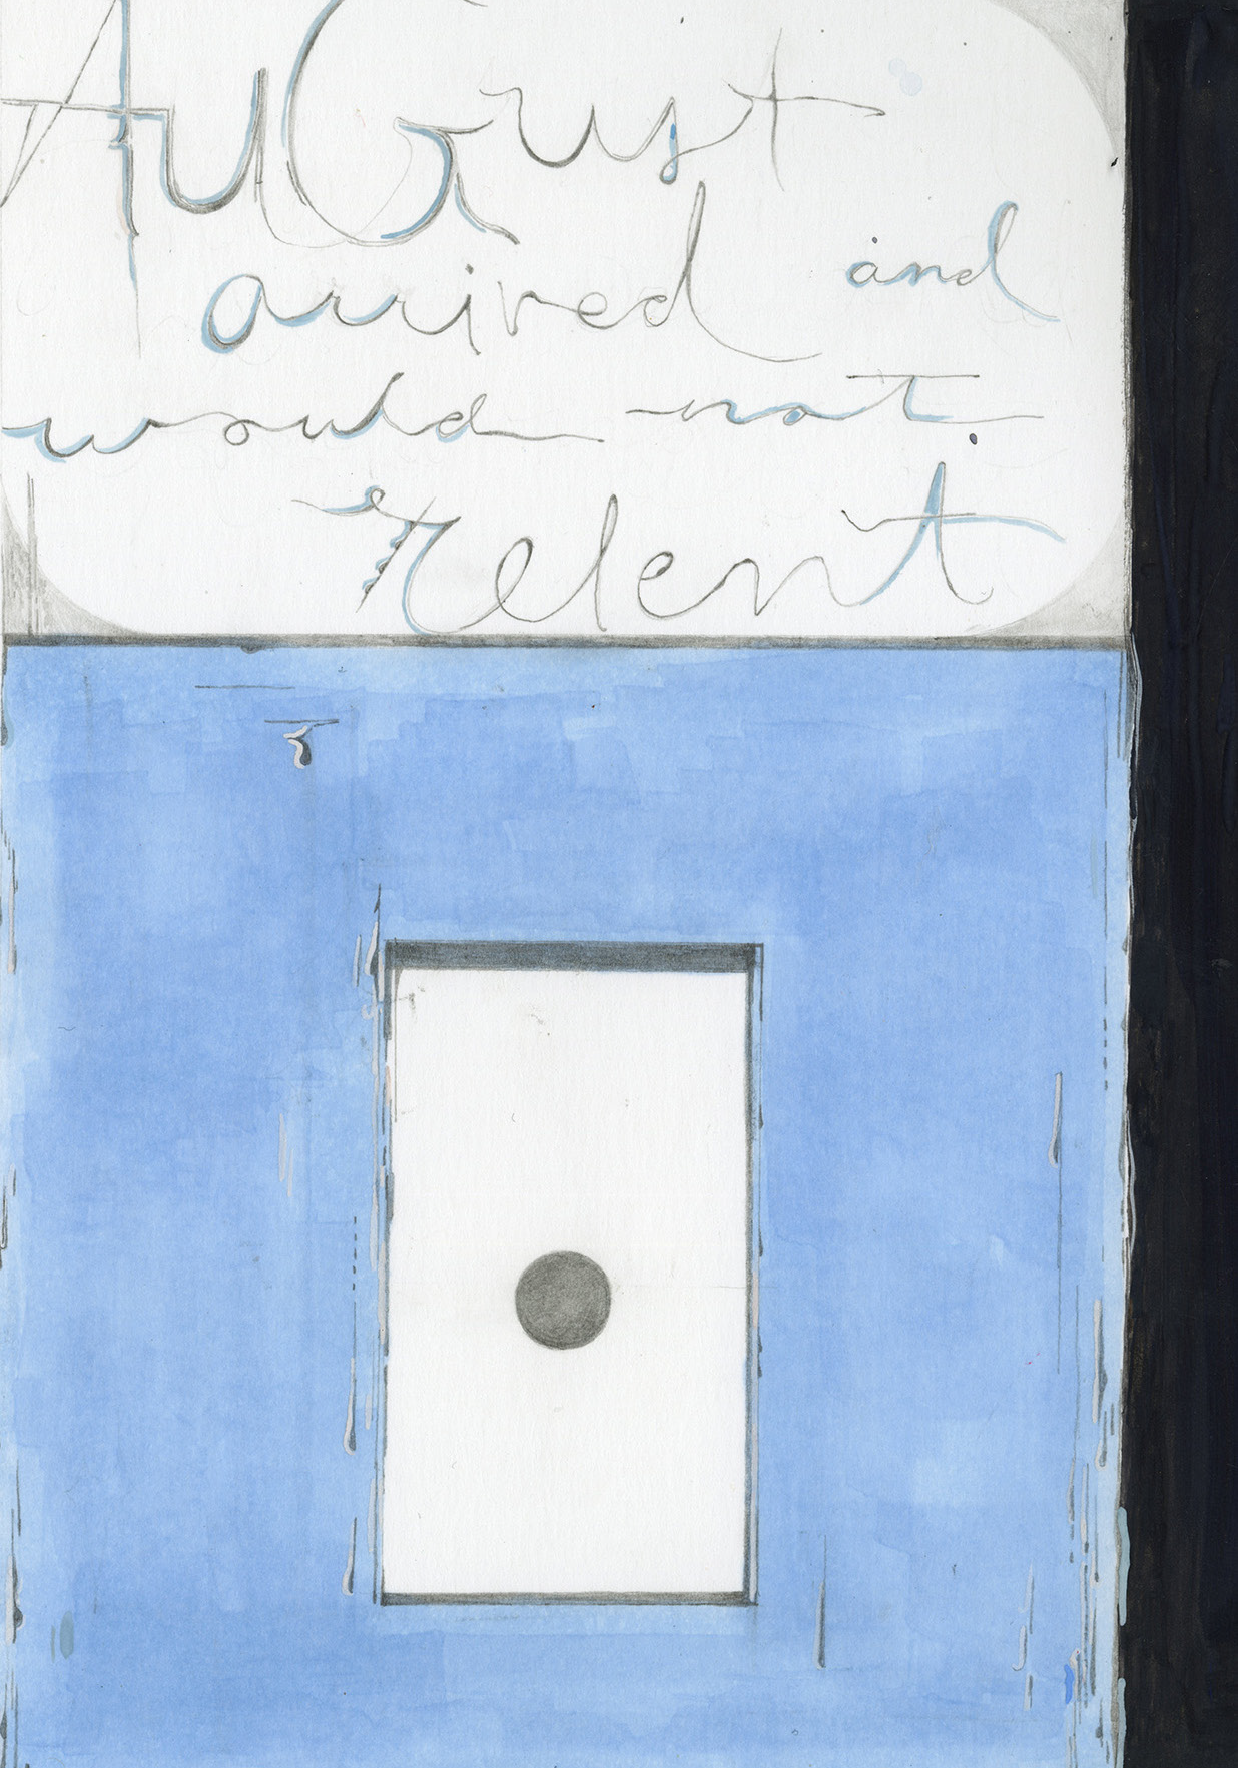 AuGust
arrived and
would not.
relent